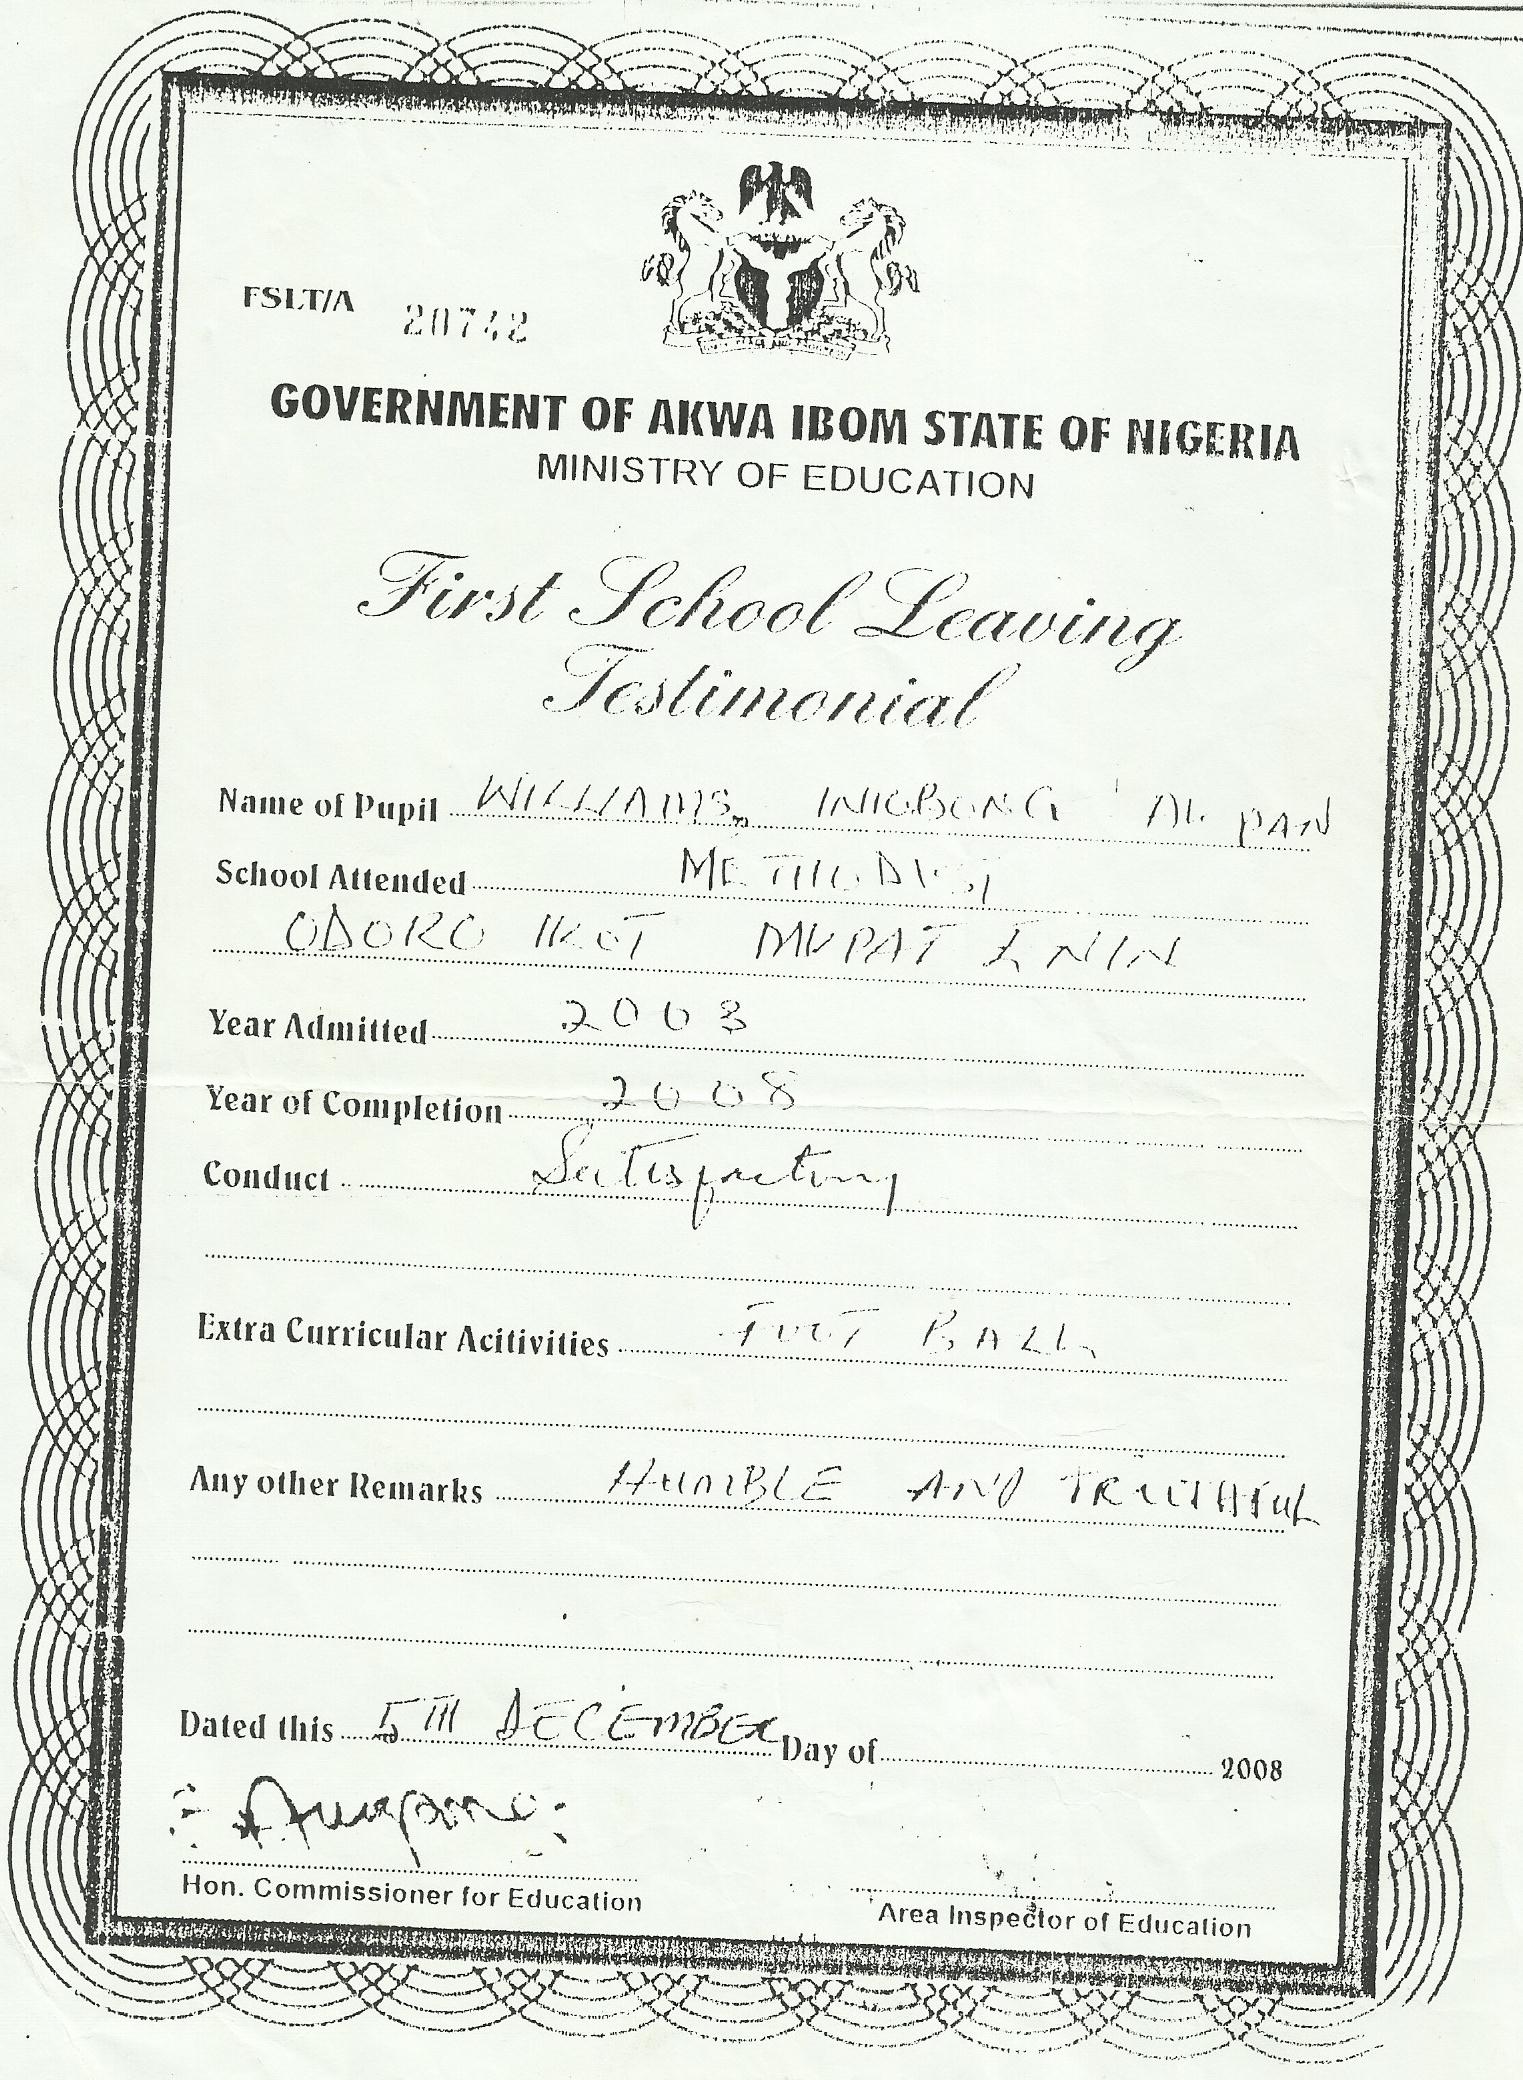 FSLT/A 20742
GOVERNMENT OF AKWA IBOM STATE OF NIGERIA
MINISTRY OF EDUCATION
First School Leaving
Testimonial
Name of Pupil WILLIAMS, INIOBONG AKPAN
School Attended METHODIST
ODORO IKOT MKPAT ENIN
Year Admitted 2003
Year of Completion 2008
Conduct Satisfactory
Extra Curricular Acitivities FOOT BALL
Any other Remarks HUMBLE AND TRUTHFUL
Dated this 5TH DECEMBER Day of 2008
Hon. Commissioner for Education
Area Inspector of Education